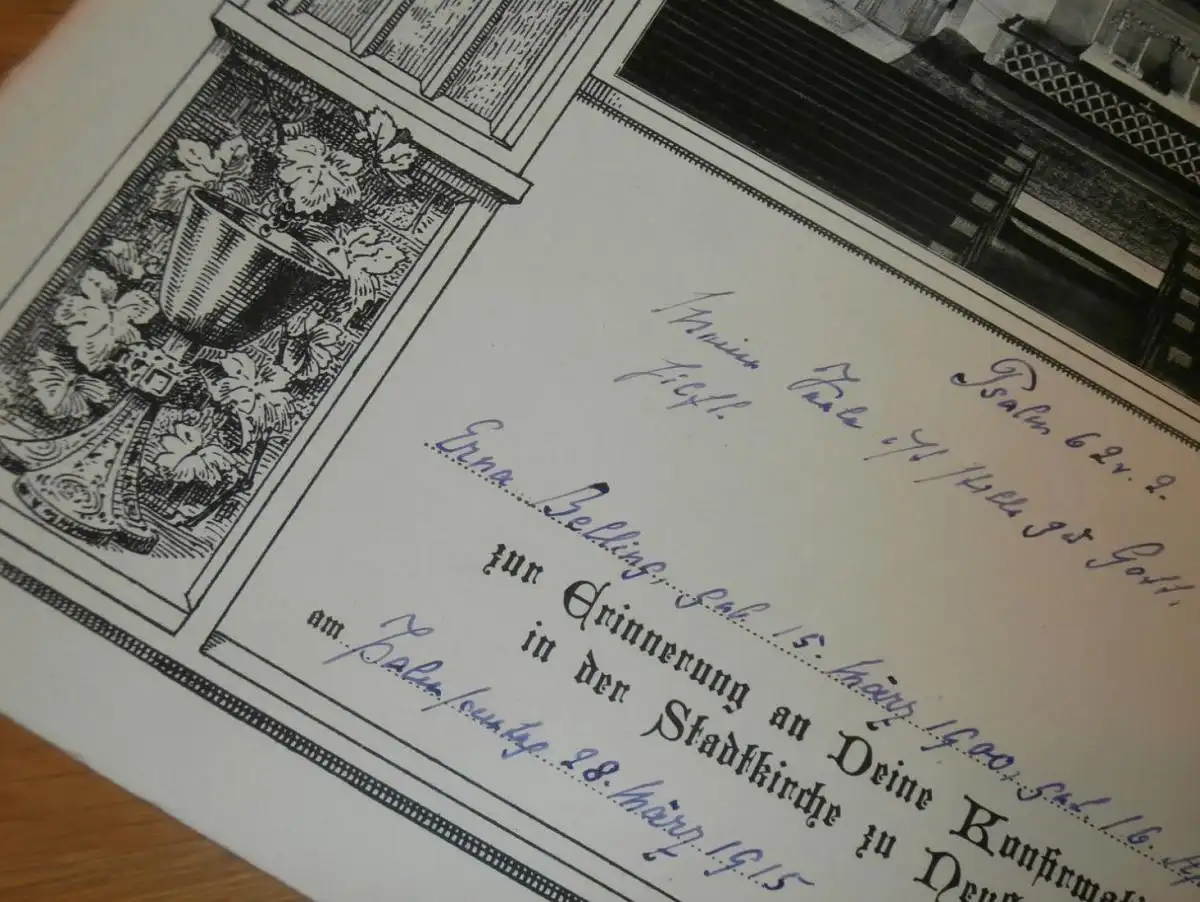 Psalm 62 v. 2.
Meine Seele ist stille zu Gott,
hilft.
Erna Belling, geb. 15. März 1900, get. 16. Ap
zur Erinnerung an Deine Konfirmati
in der Stadtkirche zu Neus
am Palmsonntag 28. März 1915